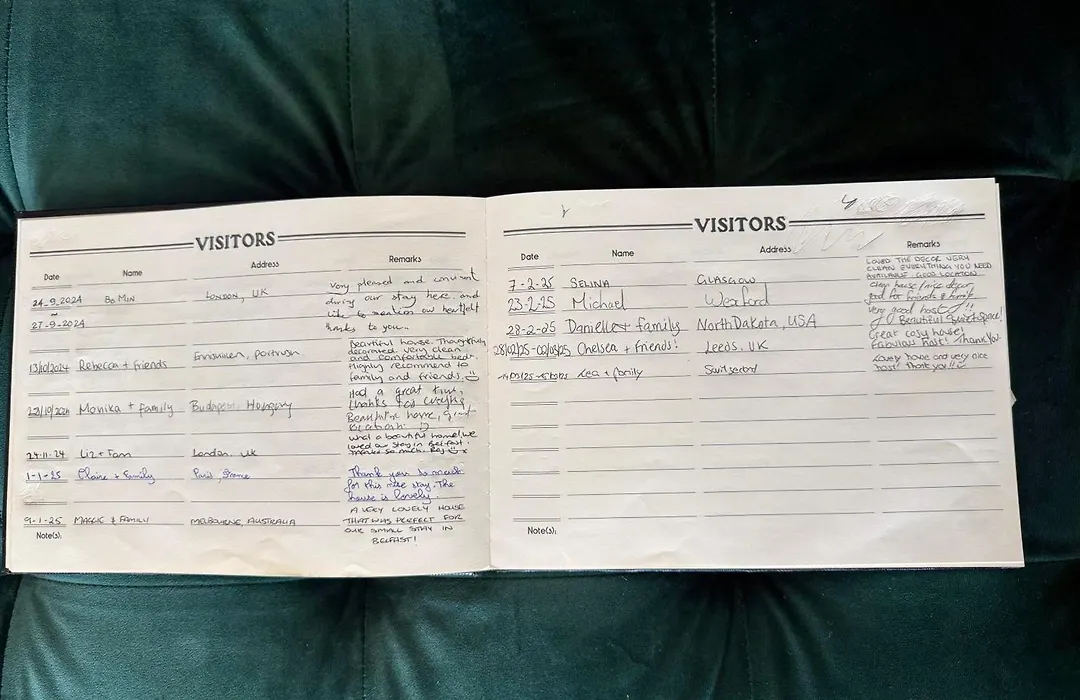 VISITORS
Date Name Address Remarks
24-9-2024 Bo Min London, UK
Very pleased and convenient
during our stay here and
like to mention our heartfelt
thanks to you..
~
27-9-2024
13/10/2024 Rebecca + friends Enniskillen, portrush
Beautiful house. Thoughtfully
decorated, very clean
and comfortable beds.
Highly recommend to
family and friends.
Monika + family Budapest, Hungary
Had a great time,
thanks for everything
Beautiful home, great
location.
24-11-24 Liz + Fam London, UK
what a beautiful home! we
loved our stay in Belfast!
Thanks so much, x
1-1-25 Claire + Family Paris, France
Thank you so much
for this nice stay. The
house is lovely.
9-1-25 MAGGIE & FAMILY MELBOURNE, AUSTRALIA
A VERY LOVELY HOUSE
THAT WAS PERFECT FOR
OUR SMALL STAY IN
BELFAST!
Note(s):
VISITORS
Date Name Address Remarks
7-2-25 SELINA GLASGOW
LOVED THE DECOR VERY
CLEAN EVERYTHING YOU NEED
AVAILABLE GOOD LOCATION
23-2-25 Michael Wexford
house / nice decor,
good for friends & family
very good host!!
28-2-25 Danielle + family North Dakota, USA
Beautiful Quiet Space!
28/02/25-02/03/25 Chelsea + friends! Leeds, UK
Great cosy house!
Fabulous host! Thank you
Lea + family Switzerland
Lovely house and very nice
host! Thank you!!
Note(s):